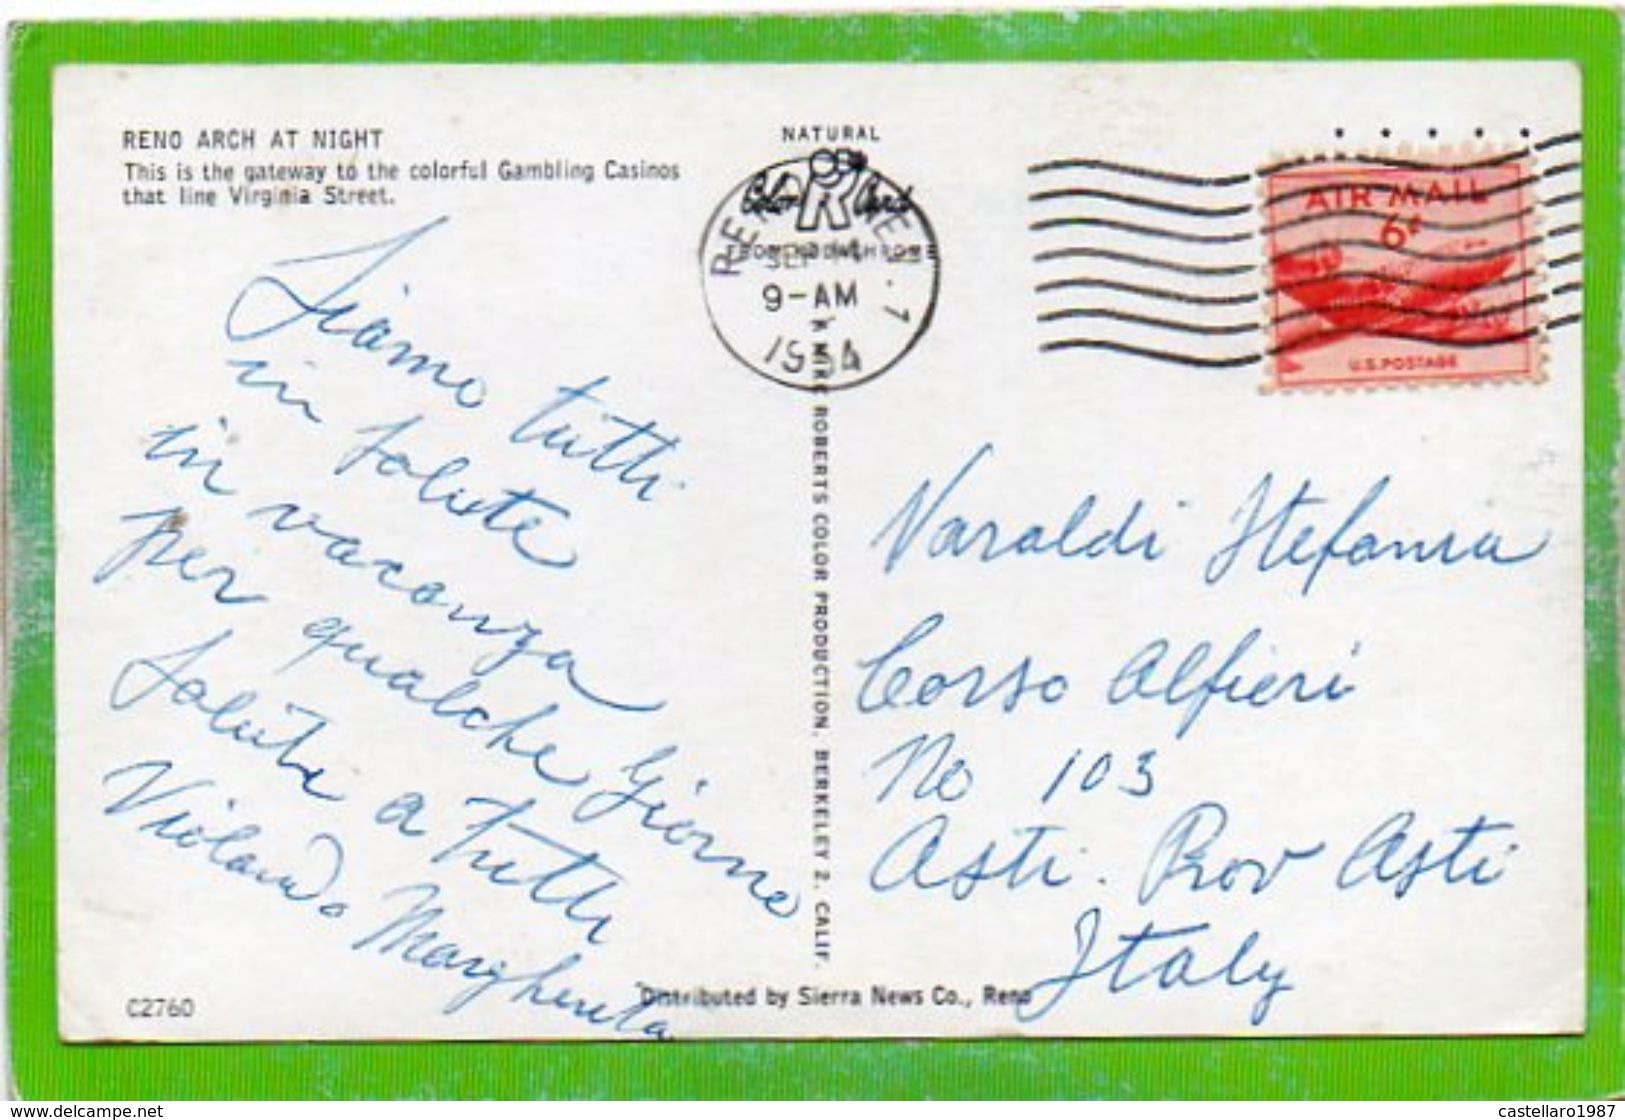 RENO ARCH AT NIGHT
This is the gateway to the colorful Gambling Casinos
that line Virginia Street.
NATURAL
Color Card
9-AM
1954
AIR MAIL
6¢
U.S. POSTAGE
Siamo tutti
in salute
in vacanza
per qualche Giorne
Saluti a tutti
Violando Margherita
MIKE ROBERTS COLOR PRODUCTION, BERKELEY 2, CALIF.
Varaldi Stefania
Corso Alfieri
No 103
Asti. Prov Asti
Italy
C2760
Distributed by Sierra News Co., Reno
castellaro1987
www.delcampe.net